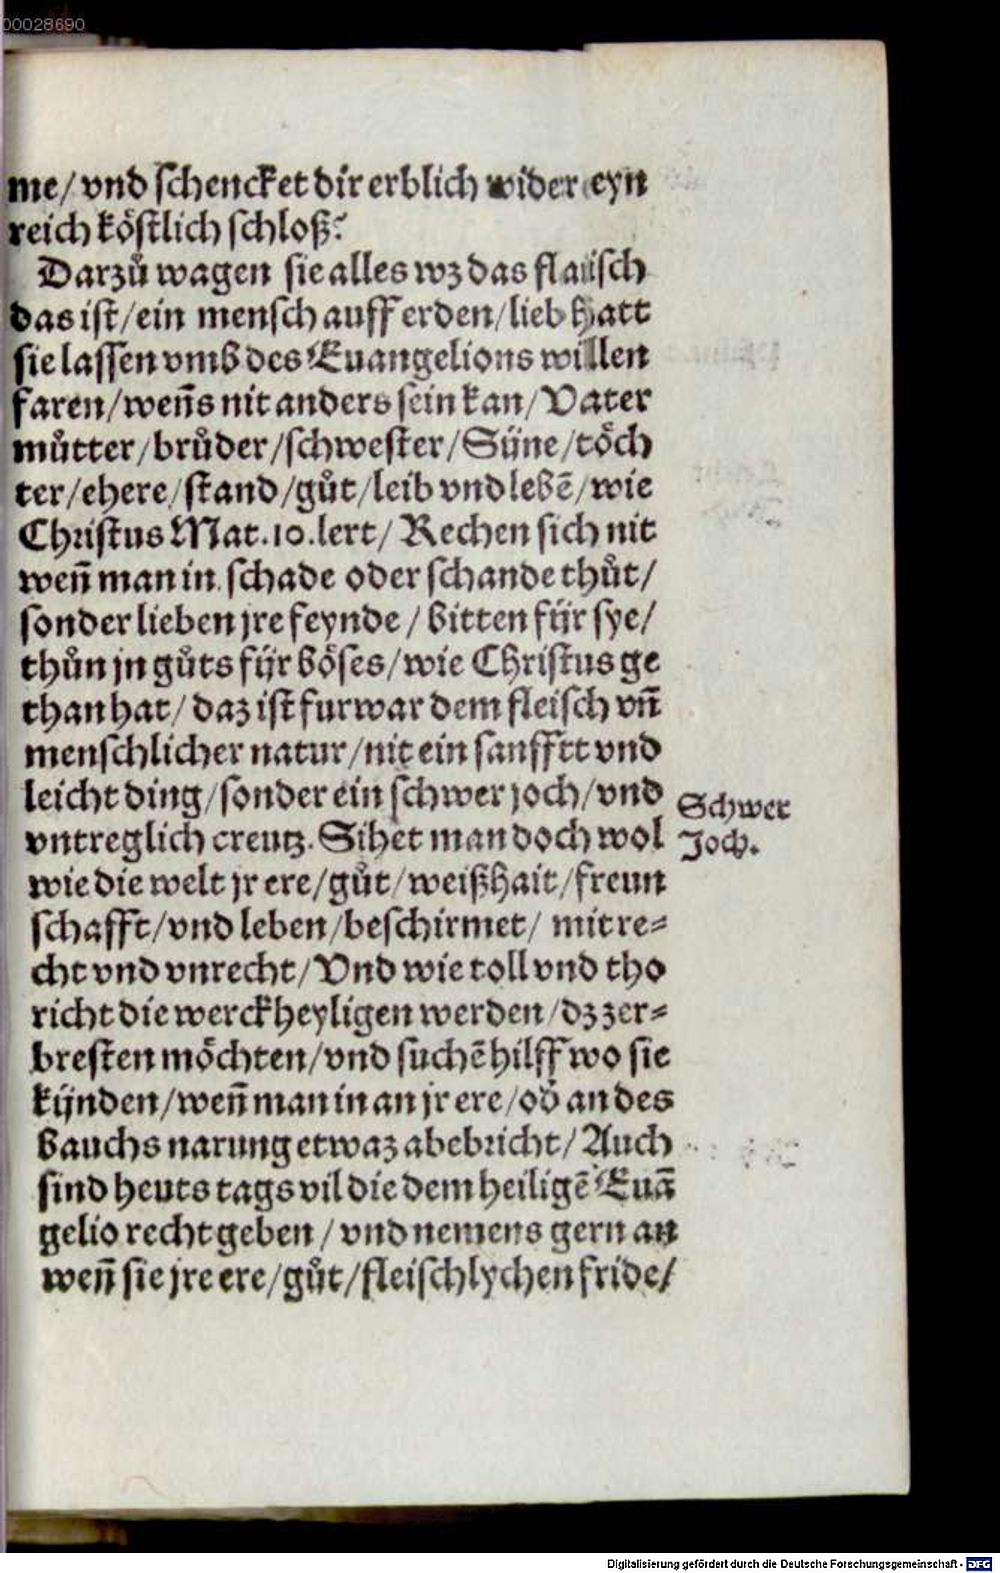 00028690
me/ vnd schencket dir erblich wider eyn
reich köstlich schloß?
Darzů wagen sie alles wz das flaisch
das ist/ein mensch auff erden/lieb hatt
sie lassen vmb des Euangelions willen
faren/weñs nit anders sein kan/ Vater
můtter/brůder/schwester/Süne/töch
ter/ehere/stand/gůt/leib vnd lebē/wie
Christus Mat.10.lert/ Rechen sich nit
weñ man in schade oder schande thůt/
sonder lieben jre feynde / bitten für sye/
thůn jn gůts für böses/wie Christus ge
than hat/ daz ist furwar dem fleisch vñ
menschlicher natur/nit ein sanfftt vnd
leicht ding/sonder ein schwer joch/vnd
vntreglich creutz. Sihet man doch wol
Schwer
Joch.
wie die welt jr ere/gůt/weißhait/freun
schafft/vnd leben/beschirmet/ mit re=
cht vnd vnrecht/Vnd wie toll vnd tho
richt die werckheyligen werden/dz zer=
bresten möchten/vnd suchē hilff wo sie
künden/weñ man in an jr ere/od̄ an des
bauchs narung etwaz abebricht/ Auch
sind heuts tags vil die dem heiligē Euā
gelio recht geben / vnd nemens gern an
weñ sie jre ere/gůt/fleischlychen fride/
Digitalisierung gefördert durch die Deutsche Forschungsgemeinschaft - DFG